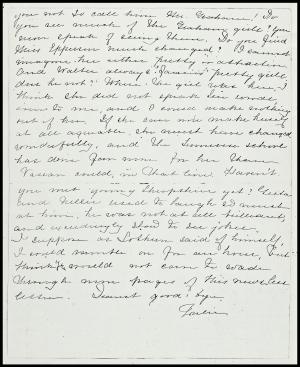 you not to call him Mr. Graham! Do
you see much of the Graham girls? You
never speak of seeing them. Do you find
Miss much changed? I cannot
imagine her either pretty or attractive
And Walter always "fancies" pretty girls,
does he not? When the girl was here, I
think she did not speak six words
even to me, and I could make nothing
out of her. If she can now make herself
at all agreeable, she must have changed
wonderfully, and the school
has done for her than
Vassar could, in that line. Haven't
you met young yet?
and used to laugh so much
at him, he was not at all brilliant,
and wonderfully slow to see jokes.
I suppose as said of himself,
I could ramble on for an hour, but
think you would not care to wade
through more pages of this newsless
letter. Dearest good-bye,